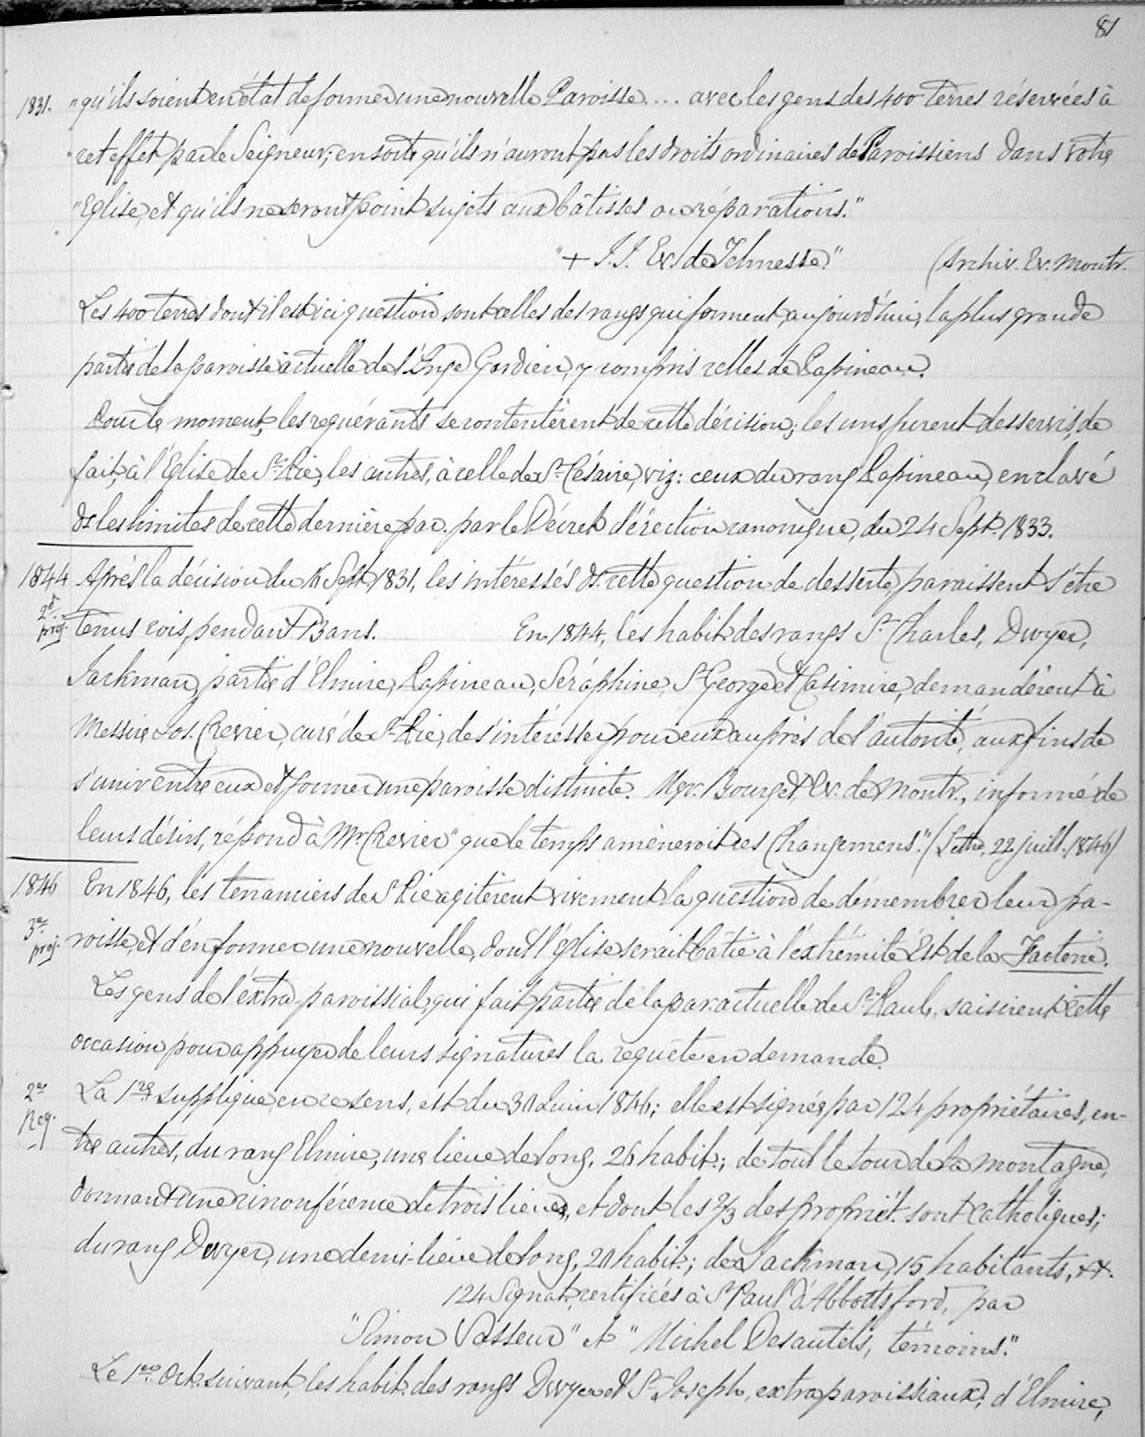 81
1831. "qu'ils soient en état de former une nouvelle Paroisse... avec les gens des 400 terres réservées à
"cet effet par le Seigneur; en sorte qu'ils n'auront pas les droits ordinaires de Paroissiens dans votre
"Eglise, et qu'ils ne seront point sujets aux bâtisses ou réparations."
"+ J. J. Ev. de Telmesse." (Archiv. Ev. Montr.
Les 400 terres dont il est ici question sont celles des rangs qui forment, aujourd'hui, la plus grande
partie de la paroisse actuelle de l'Ange Gardien, y compris celles de Papineau.
Pour le moment, les requérants se contentèrent de cette décision; les uns furent desservis, de
fait, à l'Église de St Pie, les autres, à celle de St Césaire, viz: ceux du rang Papineau, enclavé
ds les limites de cette dernière par. par le Décret d'érection canonique, du 24 Sept. 1833.
1844 Après la décision du Sept. 1831, les intéressés ds cette question de desserte, paraissent s'être
2d proj. tenus cois, pendant 13 ans. En 1844, les habit. des rangs St Charles, Dwyer,
Jackman, partie d'Elmire, Papineau, Séraphine, St George et Casimire, demandèrent à
Messire Jos. Crevier, curé de St Pie, de s'intéresser pour eux auprès de l'autorité, aux fins de
s'unir entre eux et former une paroisse distincte. Mgr. Bourget, Ev. de Montr., informé de
leurs désirs, répond à Mr Crevier "que le temps amèneroit ces changemens." (Lettre, 22 juill. 1846)
1846 En 1846, les tenanciers de St Pie agitèrent vivement la question de démembrer leur pa-
3me proj. roisse, et d'en former une nouvelle, dont l'église serait bâtie à l'extrémité Est de la Factorie.
Les gens de l'extra-paroissial, qui fait partie de la par. actuelle de St Paul, saisirent cette
occasion pour appuyer de leurs signatures la requête en demande.
2me Req. La 1re supplique, en ce sens, est du 30 Juin 1846; elle est signée par 124 propriétaires, en-
tre autres, du rang Elmire, une lieue de long, 26 habit.; de tout le tour de la montagne,
donnant une circonférence de trois lieues, et dont les 2/3 des propriét. sont catholiques;
du rang Dwyer, une demi-lieue de long, 20 habit.; de Jackman, 15 habitants, &&.
124 Signat. certifiées à St Paul d'Abbottsford, par
"Simon Vasseur" et "Michel Desautels, témoins."
Le 1er Oct. suivant, les habit. des rangs Dwyer et St Joseph, extraparoissiaux; d'Elmire,